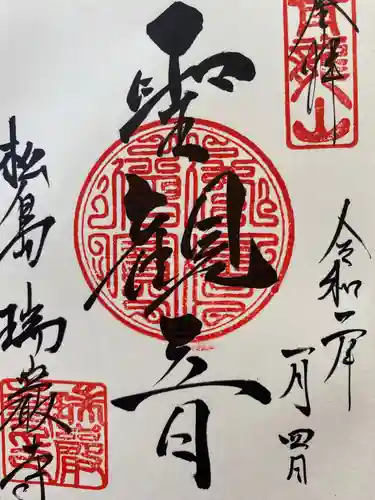 奉拝
令和二年
一月四日
聖観音
松島 瑞巌寺